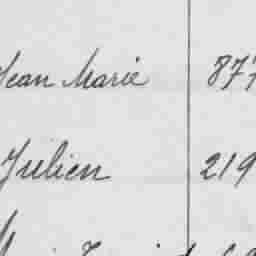 Jean Marie 877
Julien 219